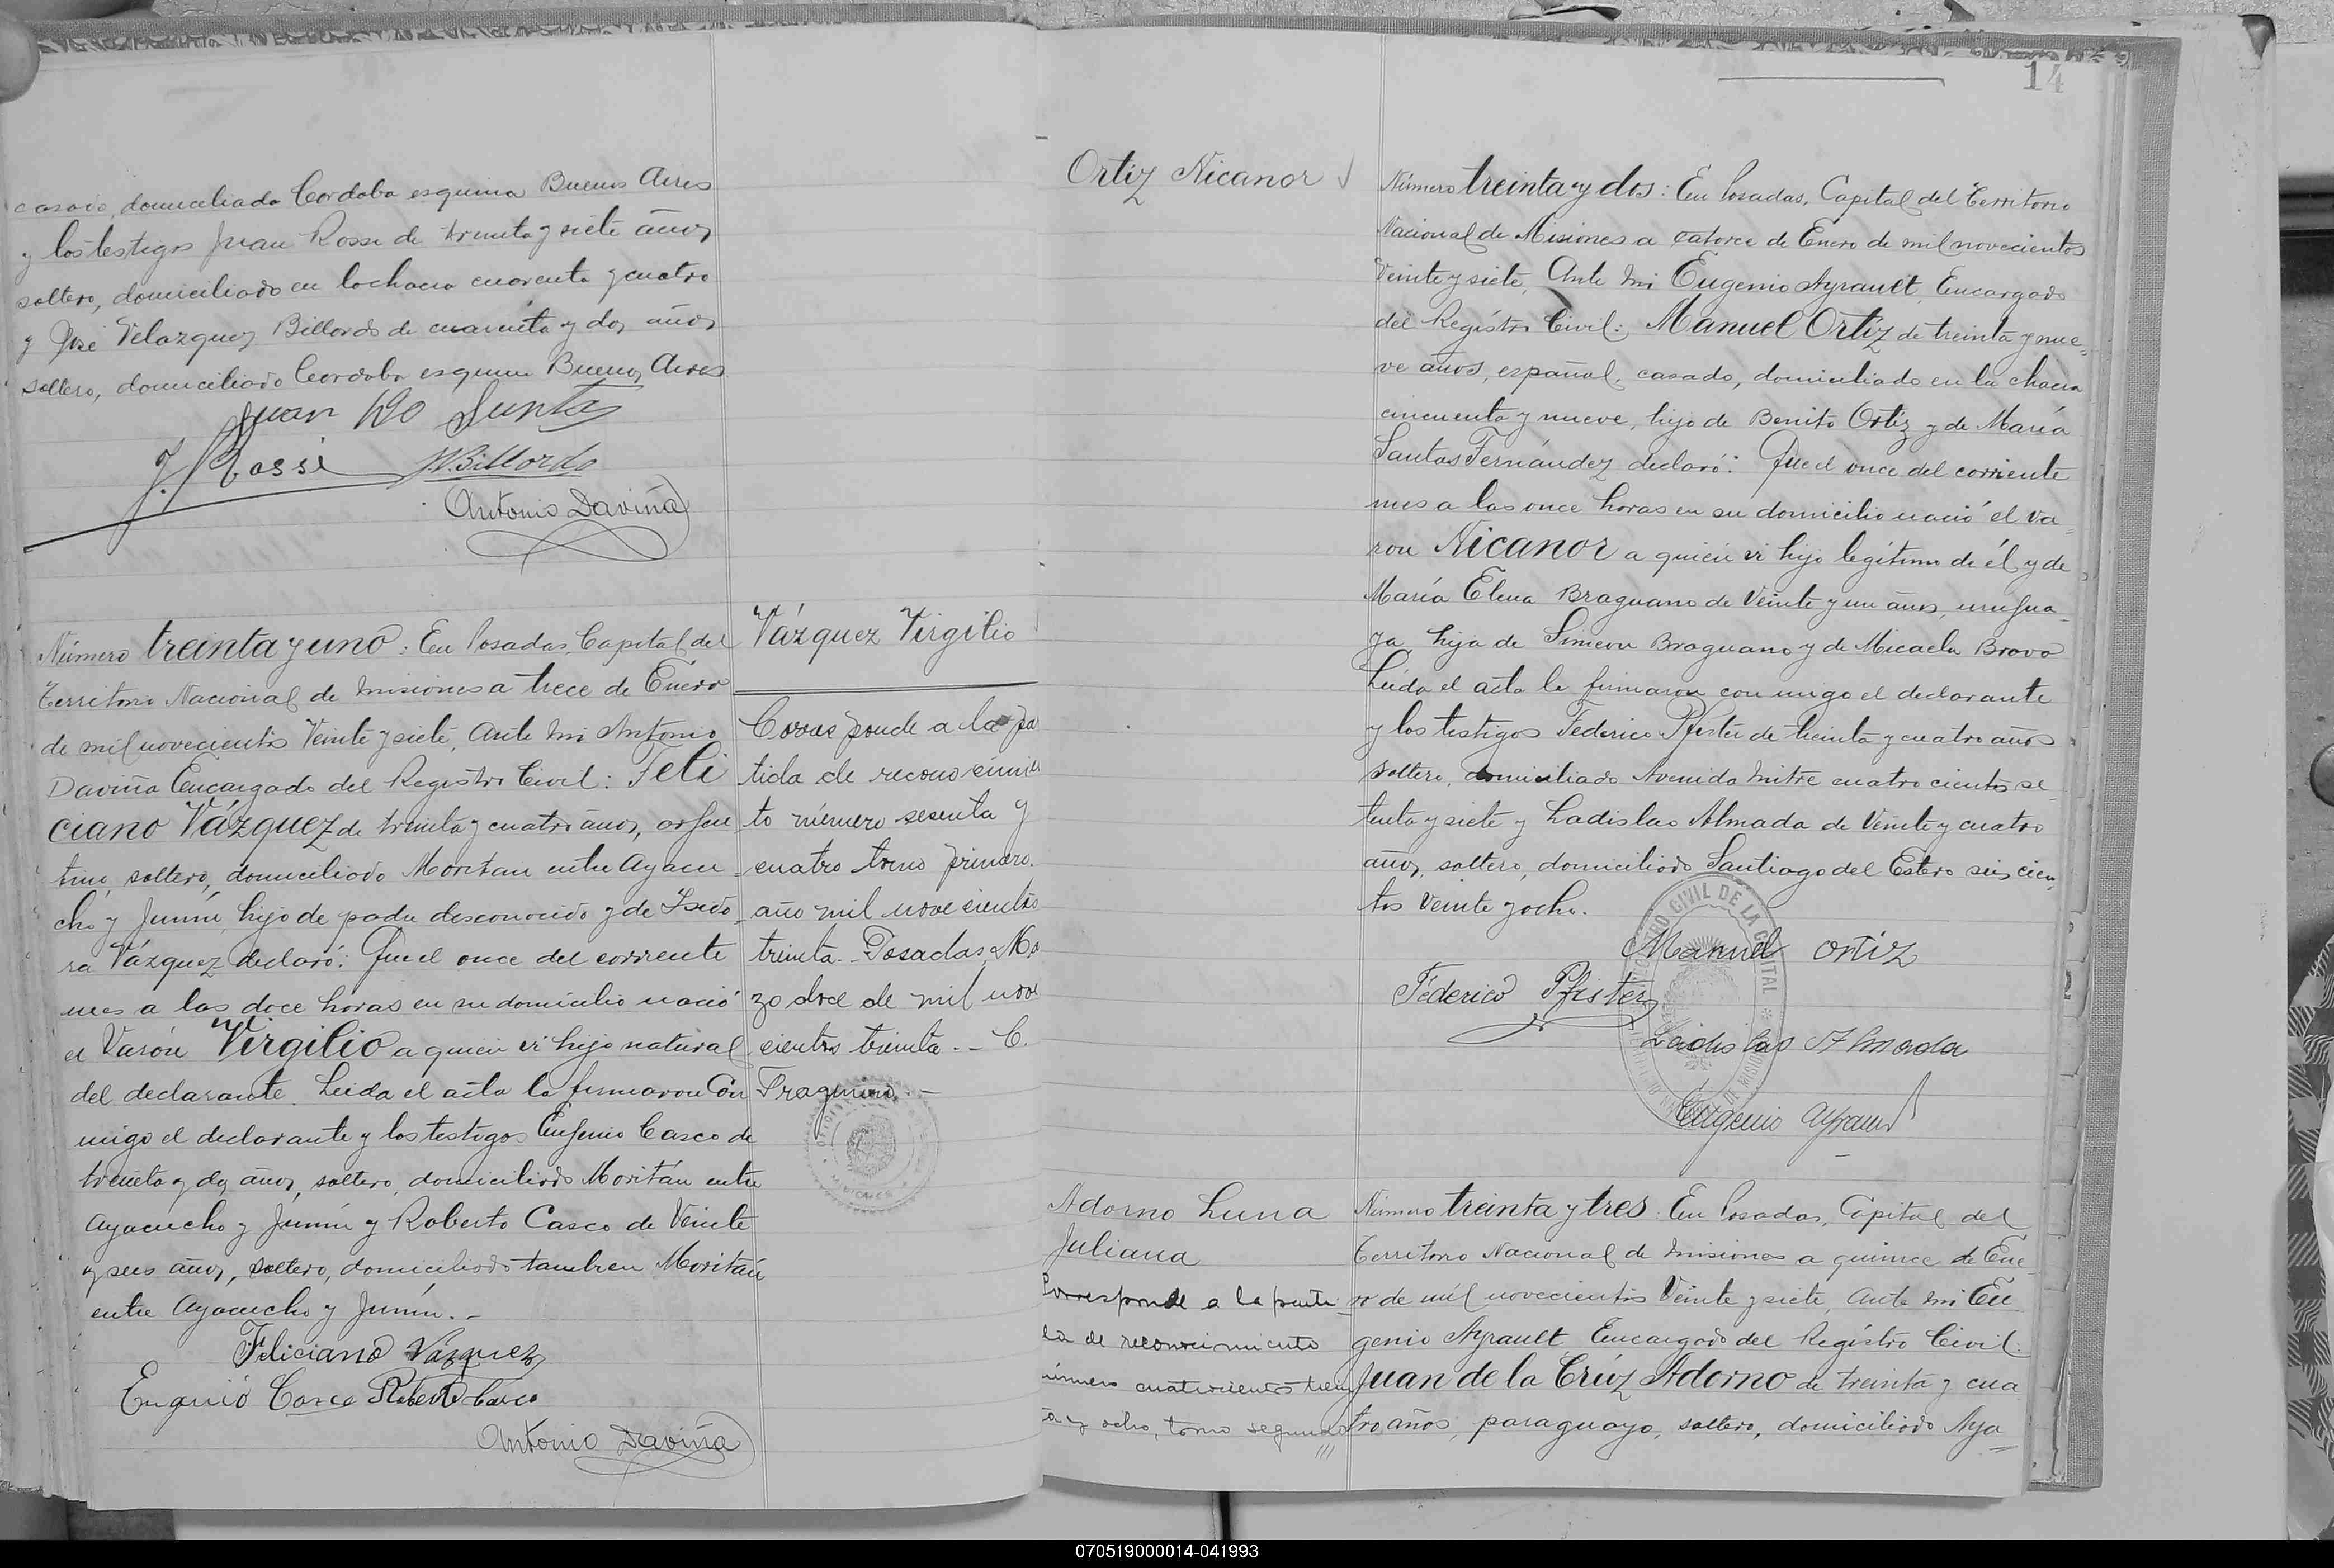 casado, domiciliado Cordoba esquina Buenos Aires
y los testigos Juan Rossi de treinta y siete años
soltero, domiciliado en la chacra cuarenta y cuatro
y José Velazquez Billordo de cuarenta y dos años
soltero, domiciliado Cordoba esquina Buenos Aires
Juan
J. Rossi Billordo
Antonio Daviña
Número treinta y uno: En Posadas, Capital del
Territorio Nacional de Misiones a trece de Enero
de mil novecientos Veinte y siete, Ante mi Antonio
Daviña Encargado del Registro Civil: Feli
ciano Vázquez de treinta y cuatro años, argen
tino, soltero, domiciliado Moritan entre Ayacu
cho y Junín, hijo de padre desconocido y de Isido
ra Vázquez declaró: Que el once del corriente
mes a las doce horas en su domicilio nació
el Varón Virgilio a quien vi hijo natural
del declarante. Leida el acta la firmaron Con
migo el declarante y los testigos Eugenio Casco de
treinta y dos años, soltero, domiciliado Moritán entre
Ayacucho y Junín y Roberto Casco de Veinte
y seis años, soltero, domiciliado tambien Moritán
entre Ayacucho y Junín.-
Feliciano Vazquez
Eugenio Casco Roberto Casco
Antonio Daviña
Vázquez Virgilio
Corresponde a la pa
tida de reconocimien
to número sesenta y
cuatro tomo primero.
año mil novecientos
treinta.- Posadas, Ma
zo doce de mil nove
cientos treinta.- C.
Fragueiro.-
Ortiz Nicanor
14
Número treinta y dos: En Posadas, Capital del Territorio
Nacional de Misiones a catorce de Enero de mil novecientos
Veinte y siete, Ante mi Eugenio Ayrault, Encargado
del Registro Civil: Manuel Ortíz de treinta y nue=
ve años, español, casado, domiciliado en la chacra
cincuenta y nueve, hijo de Benito Ortiz y de María
Santos Fernández declaró: Que el once del corriente
mes a las once horas en su domicilio nació el va=
ron Nicanor a quien vi hijo legítimo de él y de
María Elena Braguano de Veinte y un años, urugua_
ya hija de Simeon Braguano y de Micaela Bravo
Leida el acta la firmaron con migo el declarante
y los testigos Federico Pfister de treinta y cuatro años
soltero, domiciliado Avenida Mitre cuatrocientos se_
tenta y siete y Ladislao Almada de Veinte y cuatro
años, soltero, domiciliado Santiago del Estero seis cien_
tos Veinte y ocho.
Manuel Ortiz
Federico Pfister
Ladislao Almada
Eugenio Ayrault
REGISTRO CIVIL DE LA CAPITAL
Adorno Luna
Juliana
Corresponde a la parti
da de reconocimiento
número cuatrocientos trein
ta y ocho, tomo segundo
Número treinta y tres: En Posadas, Capital del
Territorio Nacional de Misiones a quince de Ene
ro de mil novecientos Veinte y siete, Ante mi Eu
genio Ayrault Encargado del Registro Civil:
Juan de la Crúz Adorno de treinta y cua
tro años, paraguayo, soltero, domiciliado Aya
070519000014-041993